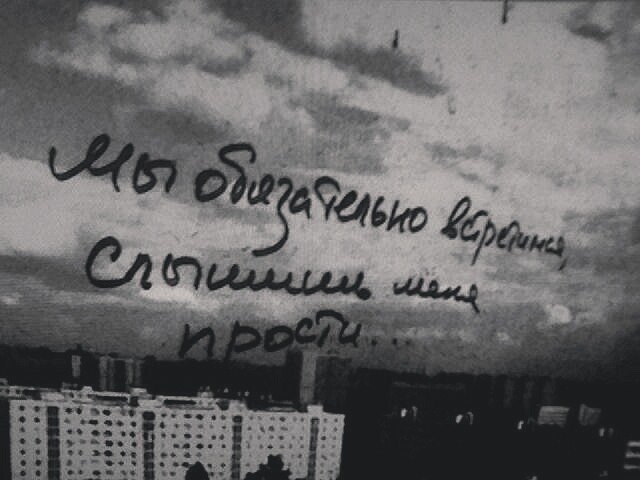 Мы обязательно встретимся,
Слышишь меня
прости...